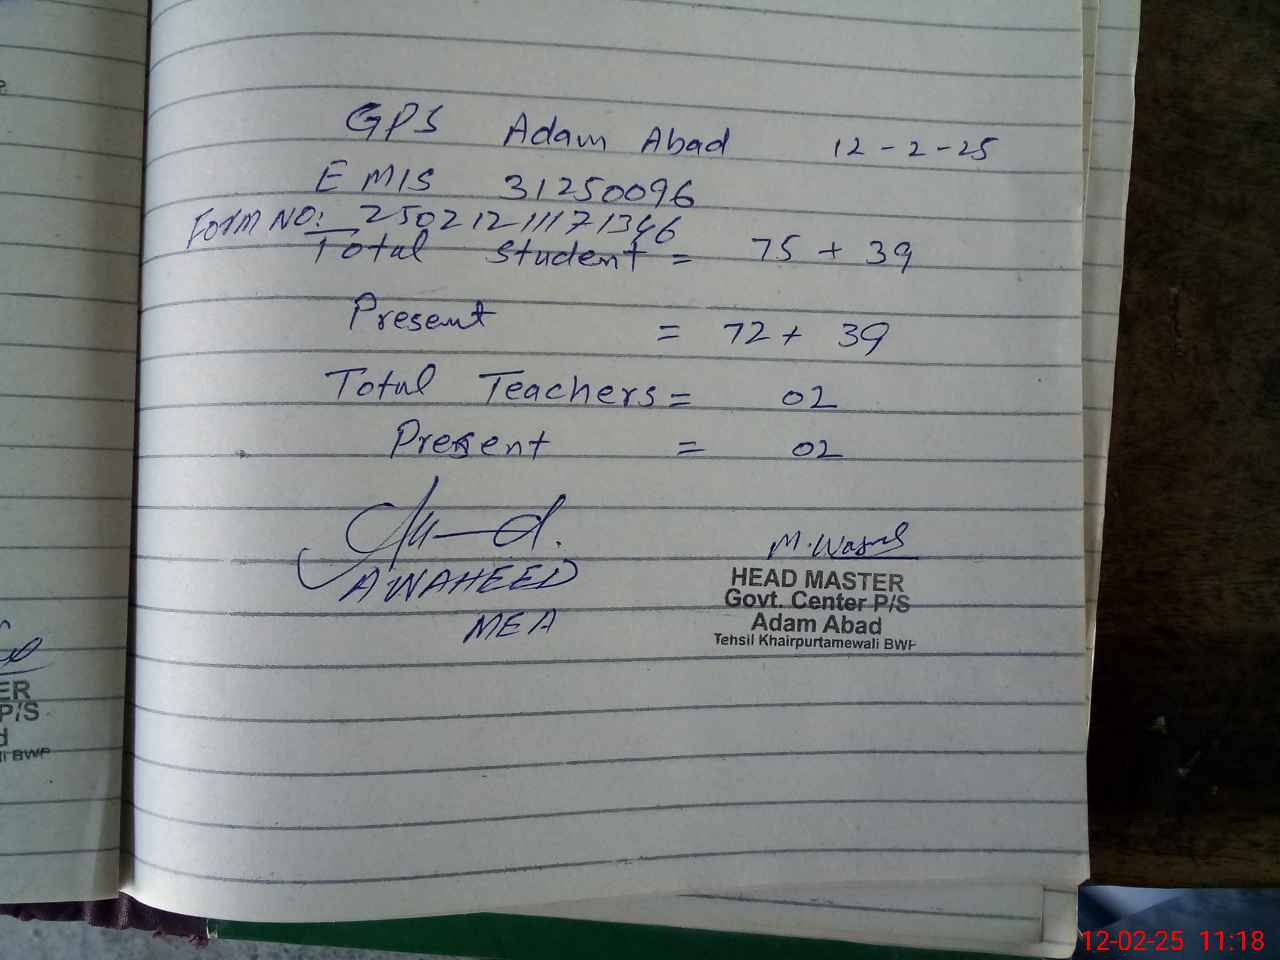 GPS Adam Abad 12-2-25
EMIS 31250096
Form NO: 250212111171346
Total Student = 75 + 39
Present = 72 + 39
Total Teachers = 02
Present = 02
A WAHEED
MEA
HEAD MASTER
Govt. Center P/S
Adam Abad
Tehsil Khairpurtamewali BWP
ER
P/S
d
li BWP
12-02-25 11:18